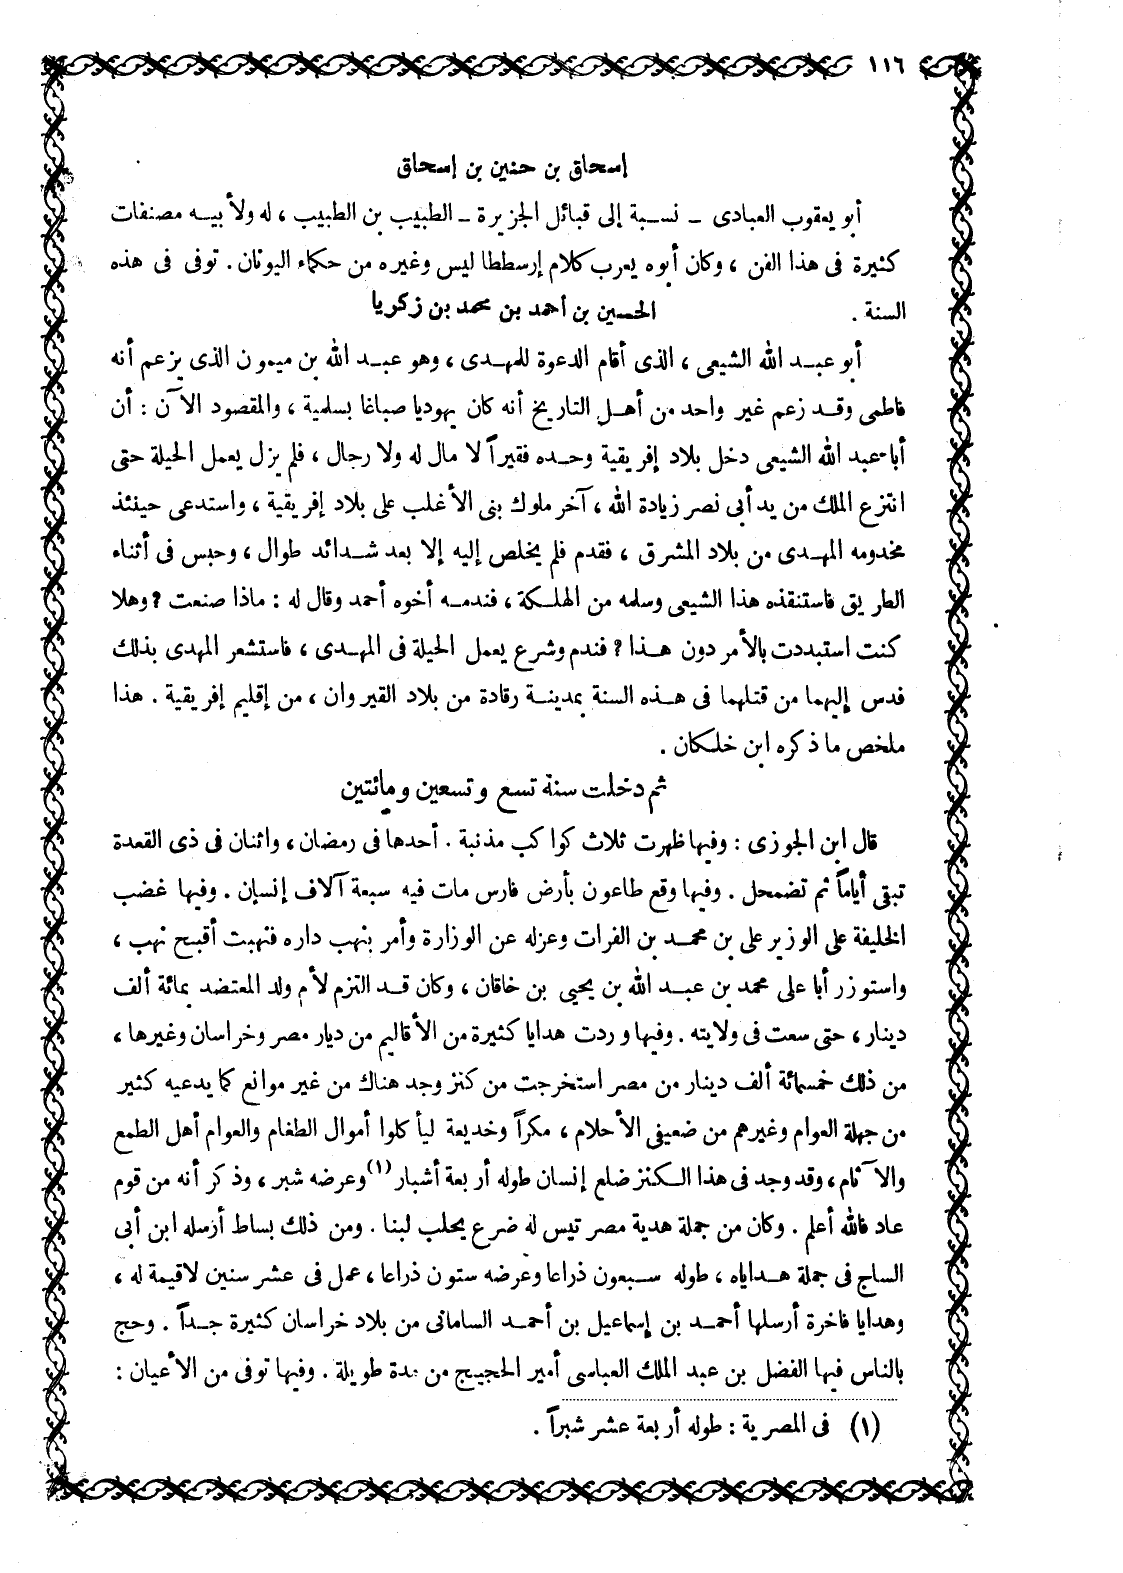 ١١٦
إسحاق بن حنين بن إسحاق
أبو يعقوب العبادى ـ نسبة إلى قبائل الجزيرة ـ الطبيب بن الطبيب ، له ولأبيه مصنفات
كثيرة فى هذا الفن ، وكان أبوه يعرب كلام إرسططا ليس وغيره من حكماء اليونان . توفى فى هذه
السنة . الحسين بن أحمد بن محمد بن زكريا
أبو عبد الله الشيعى ، الذى أقام الدعوة للمهدى ، وهو عبد الله بن ميمون الذى يزعم أنه
فاطمى وقد زعم غير واحد من أهل التاريخ أنه كان يهوديا صباغا بسلمية ، والمقصود الآن : أن
أبا عبد الله الشيعى دخل بلاد إفريقية وحده فقيراً لا مال له ولا رجال ، فلم يزل يعمل الحيلة حتى
انتزع الملك من يد أبى نصر زيادة الله ، آخر ملوك بنى الأغلب على بلاد إفريقية ، واستدعى حينئذ
مخدومه المهدى من بلاد المشرق ، فقدم فلم يخلص إليه إلا بعد شدائد طوال ، وحبس فى أثناء
الطريق فاستنقذه هذا الشيعى وسلمه من الهلكة ، فندمه أخوه أحمد وقال له : ماذا صنعت ؟ وهلا
كنت استبددت بالأمر دون هذا ؟ فندم وشرع يعمل الحيلة فى المهدى ، فاستشعر المهدى بذلك
فدس إليهما من قتلهما فى هذه السنة بمدينة رقادة من بلاد القيروان ، من إقليم إفريقية . هذا
ملخص ما ذكره ابن خلكان .
ثم دخلت سنة تسع وتسعين ومائتين
قال ابن الجوزى : وفيها ظهرت ثلاث كواكب مذنبة . أحدها فى رمضان ، واثنان فى ذى القعدة
تبقى أياماً ثم تضمحل . وفيها وقع طاعون بأرض فارس مات فيه سبعة آلاف إنسان . وفيها غضب
الخليفة على الوزير على بن محمد بن الفرات وعزله عن الوزارة وأمر بنهب داره فنهبت أقبح نهب ،
واستوزر أبا على محمد بن عبد الله بن يحيى بن خاقان ، وكان قد التزم لأم ولد المعتضد بمائة ألف
دينار ، حتى سعت فى ولايته . وفيها وردت هدايا كثيرة من الأقاليم من ديار مصر وخراسان وغيرها ،
من ذلك خمسمائة ألف دينار من مصر استخرجت من كنز وجد هناك من غير موانع كما يدعيه كثير
من جهلة العوام وغيرهم من ضعيفى الأحلام ، مكراً وخديعة ليأكلوا أموال الطغام والعوام أهل الطمع
والآثام ، وقد وجد فى هذا الكنز ضلع إنسان طوله أربعة أشبار (١) وعرضه شبر ، وذكر أنه من قوم
عاد فالله أعلم . وكان من جملة هدية مصر تيس له ضرع يحلب لبنا . ومن ذلك بساط أرسله ابن أبى
الساج فى جملة هداياه ، طوله سبعون ذراعا وعرضه ستون ذراعا ، عمل فى عشر سنين لاقيمة له ،
وهدايا فاخرة أرسلها أحمد بن إسماعيل بن أحمد السامانى من بلاد خراسان كثيرة جداً . وحج
بالناس فيها الفضل بن عبد الملك العباسى أمير الحجيج من مدة طويلة . وفيها توفى من الأعيان :
(١) فى المصرية : طوله أربعة عشر شبراً .